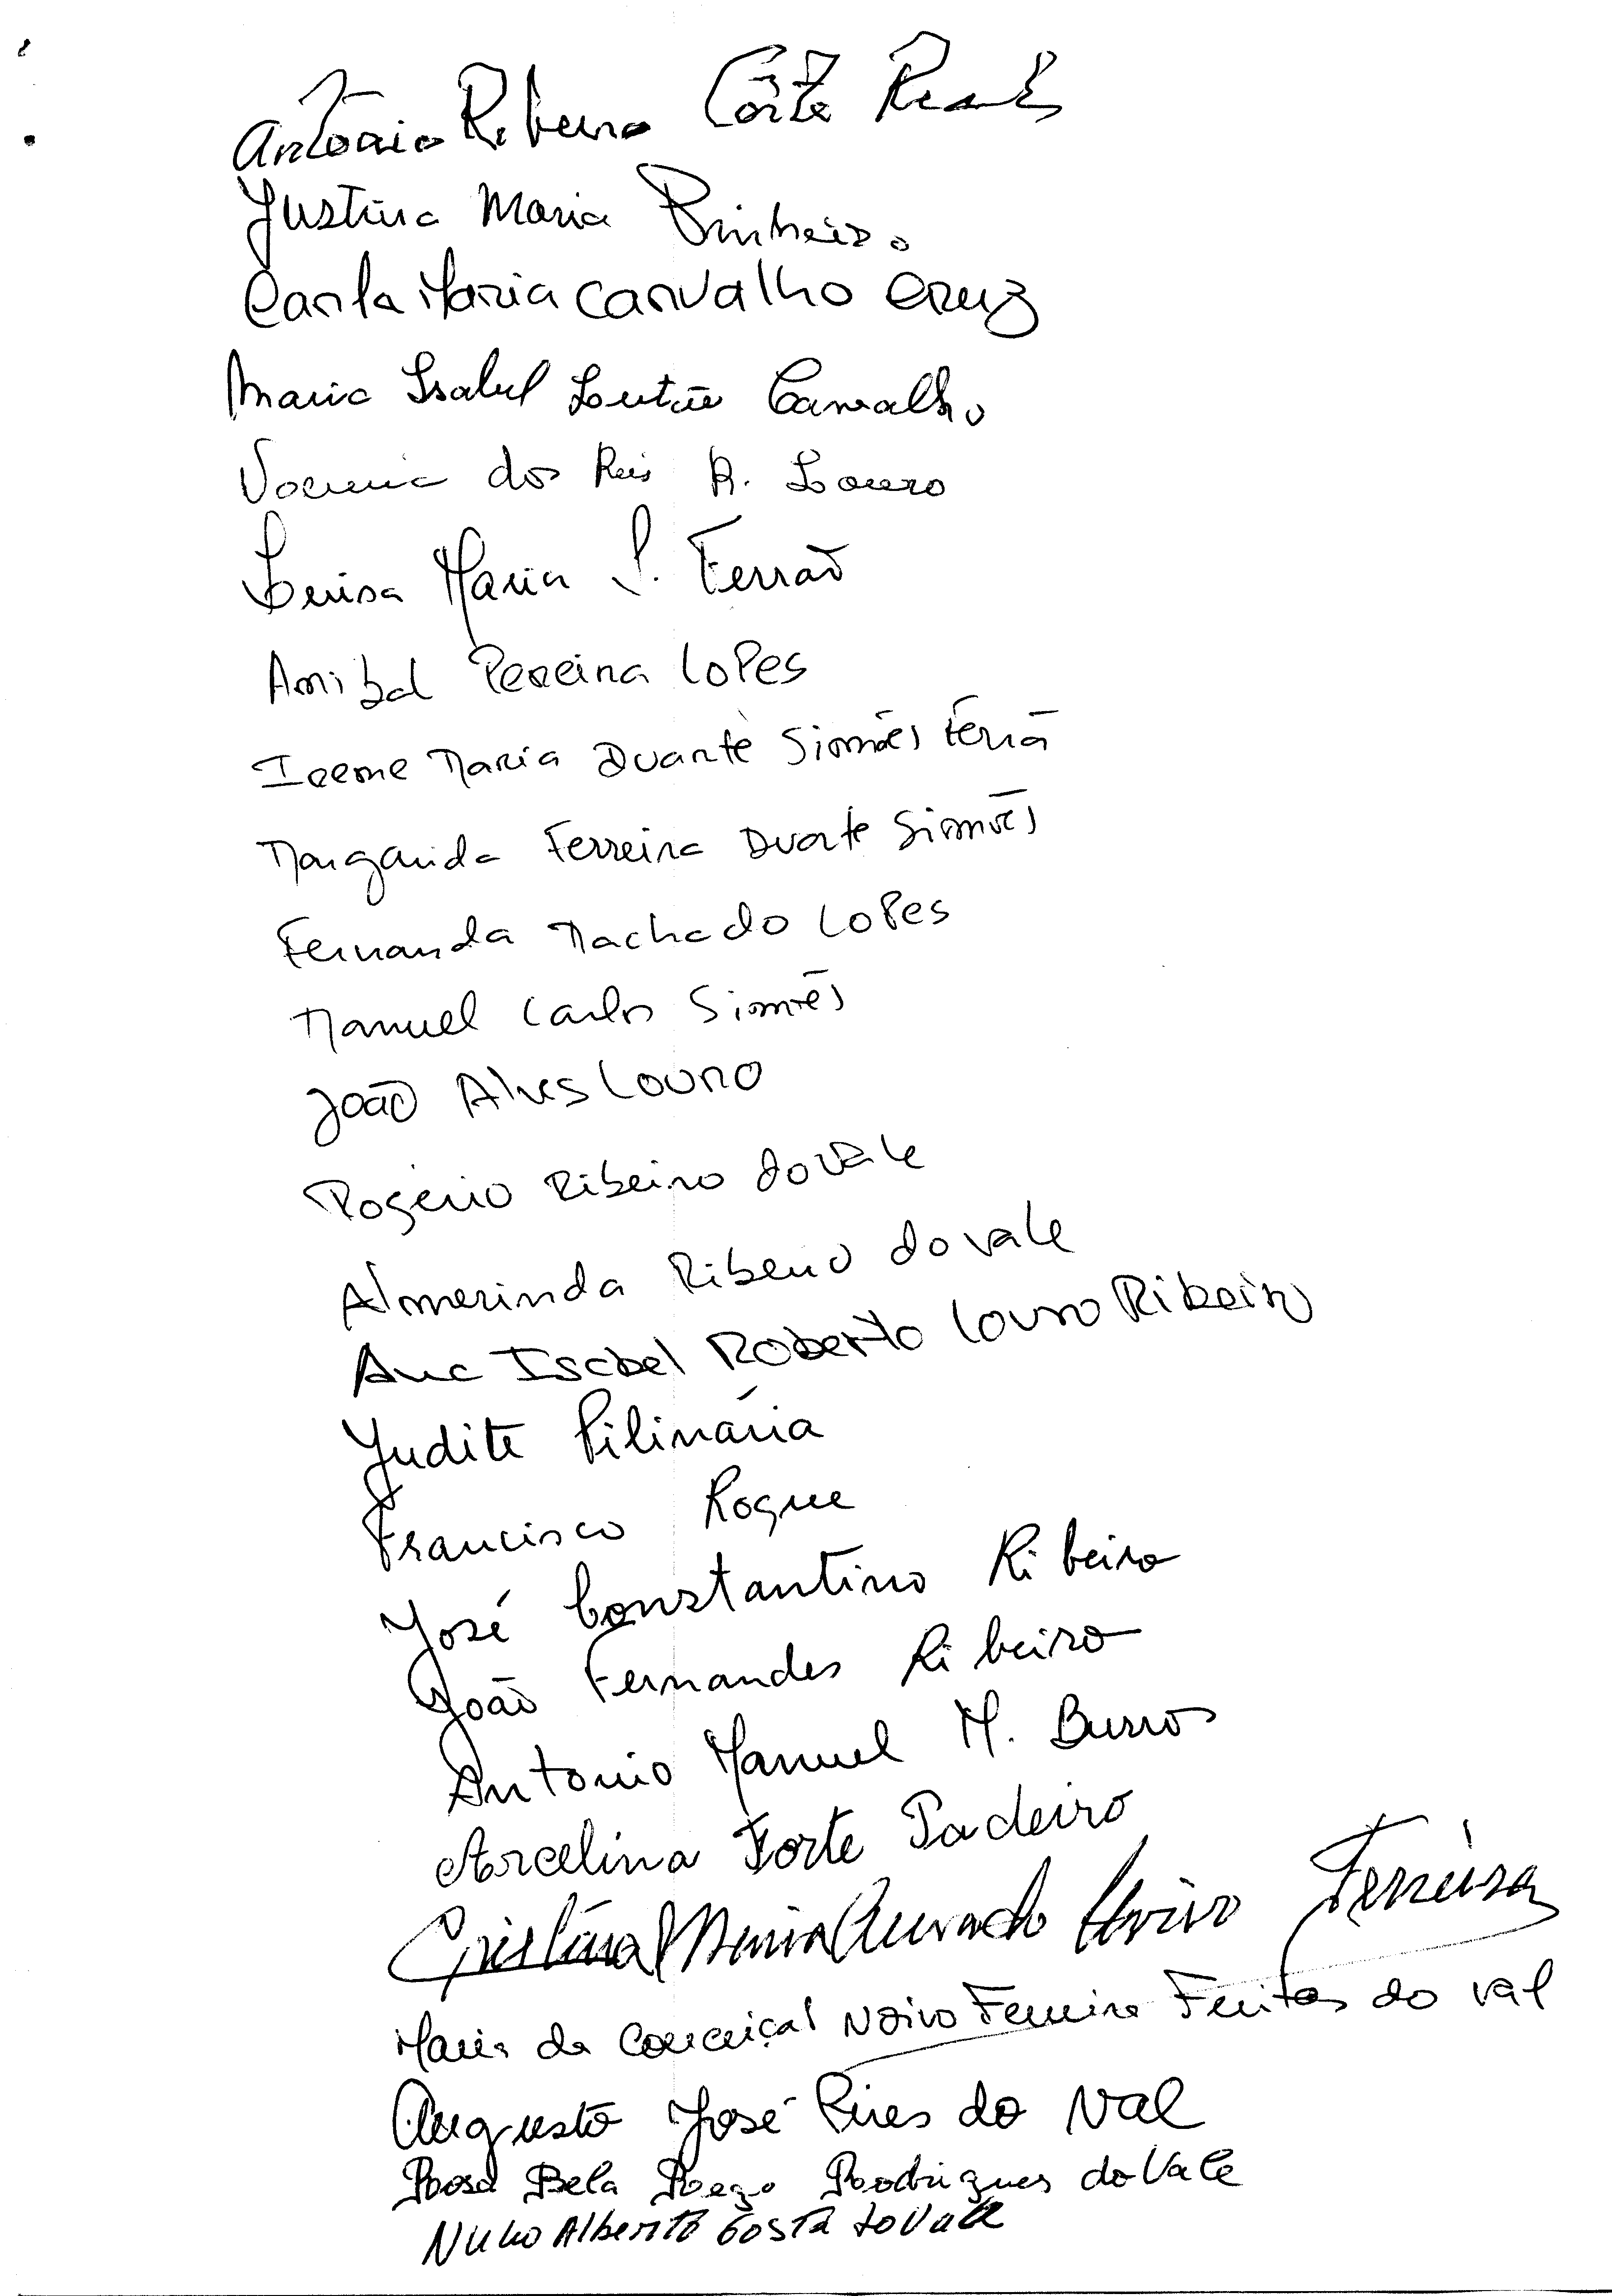 António Ribeiro Côrte Real
Justina Maria Pinheiro
Carla Maria Carvalho Cruz
Maria Isabel Leitão Carvalho
dos Reis A. Louro
Luisa Maria S. Ferrão
Anibal Pereira Lopes
Irene Maria Duarte Simões Ferrã
Margarida Ferreira Duarte Simões
Fernanda Machado Lopes
Manuel Carlos Simões
João Alves Louro
Rogério Ribeiro do Vale
Almerinda Ribeiro do Vale
Ana Isabel Roberto Louro Ribeiro
Judite Pilinária
Francisco Roque
José Constantino Ribeiro
João Fernandes Ribeiro
Antonio Manuel M. Burros
Arcelina Forte Padeiro
Cristina Maria Ferreira
Maria da Conceição Noivo Ferreira Freitas do Val
Augusto José Pires do Val
Rosa Bela Rodrigues do Vale
Nuno Alberto Costa do Vale